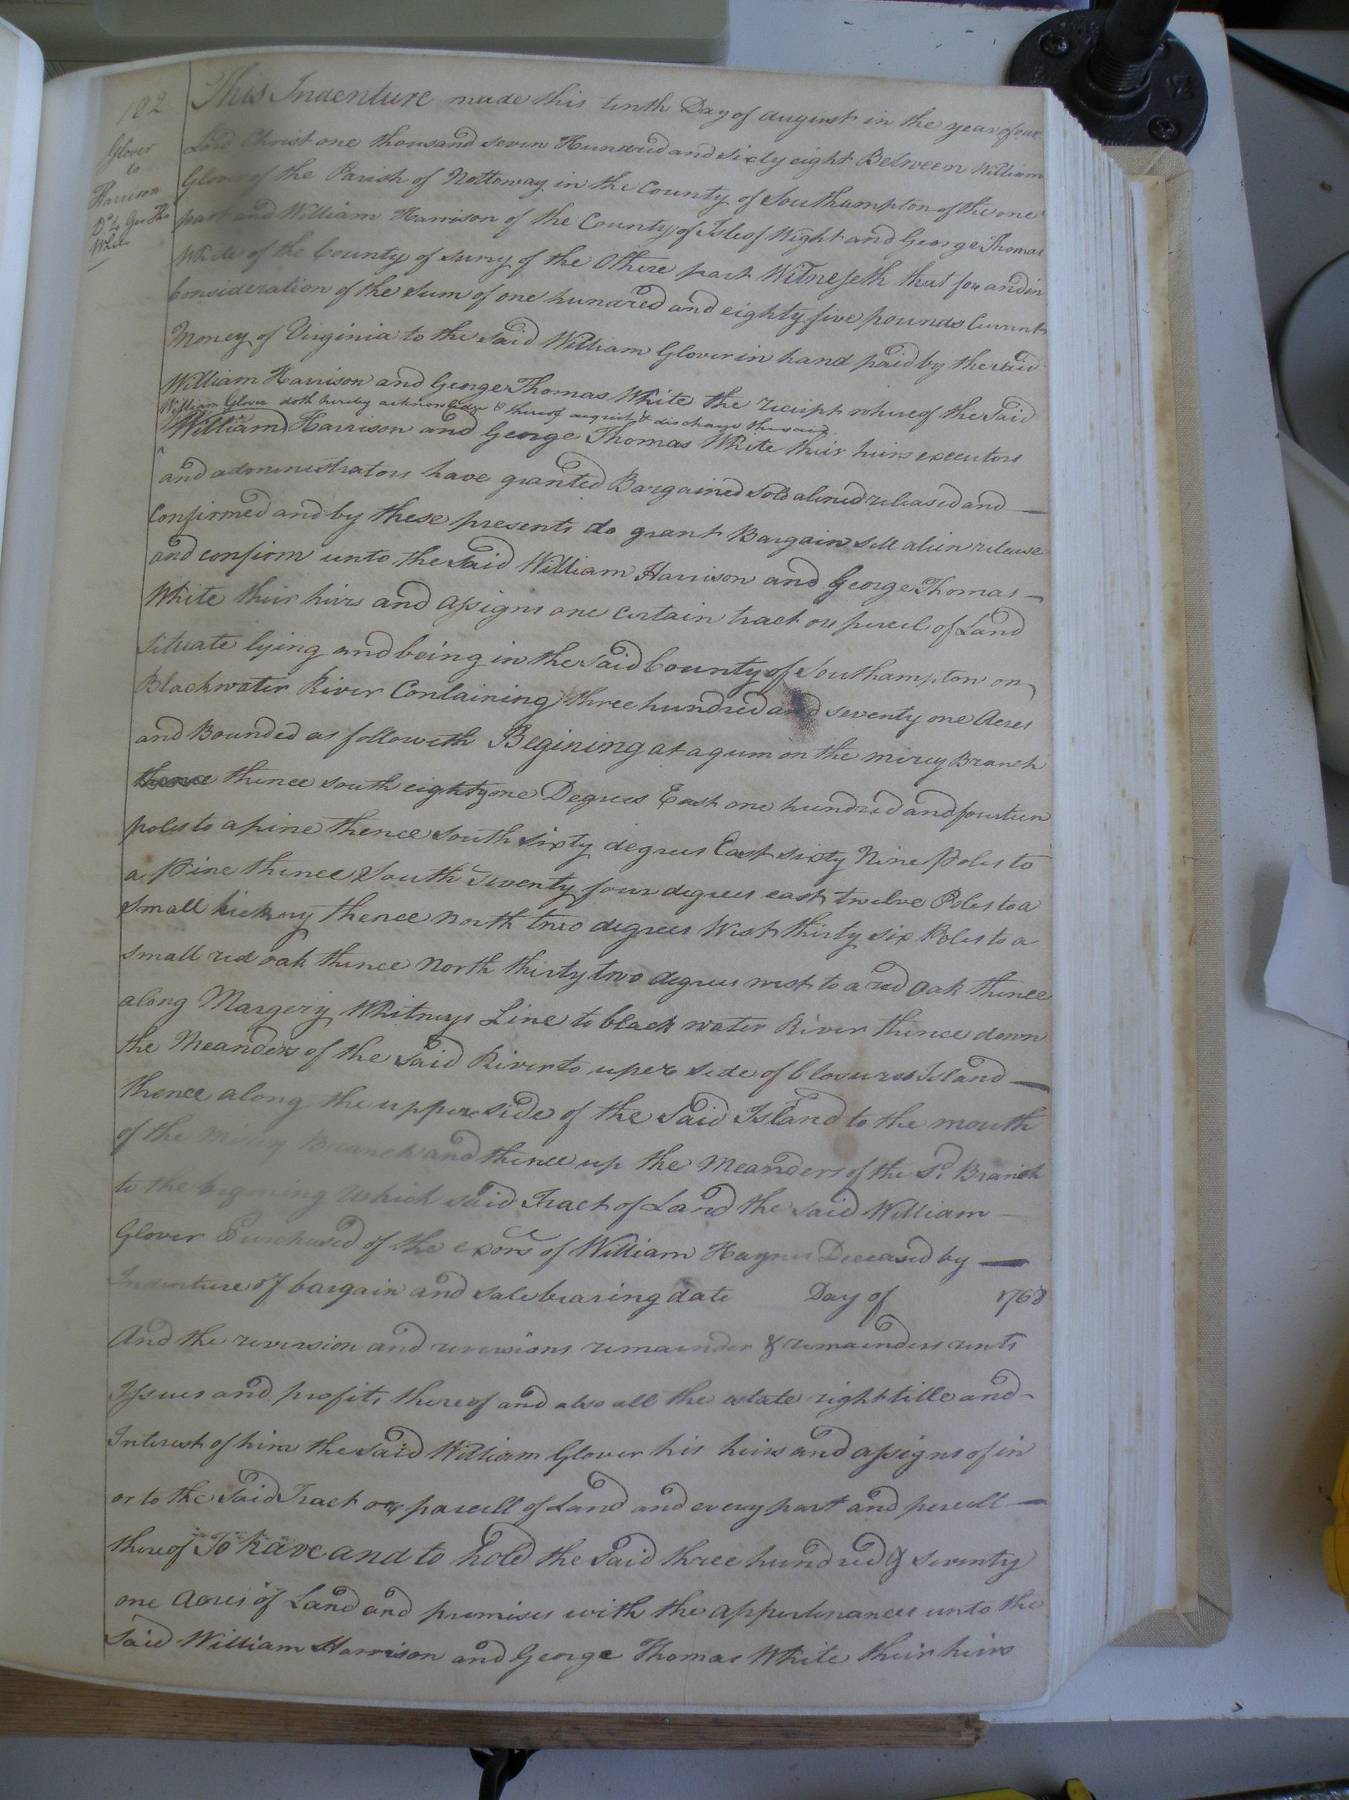 182
Glover
to
Harrison
Do & Geo Tho
White
This Indenture made this tenth Day of august in the year of our
Lord Christ one thousand seven Hundred and sixty eight Between William
Glover of the Parish of Nottoway in the County of Southampton of the one
part and William Harrison of the County of Isle of Wight and George Thomas
White of the County of surry of the Othere part Witnesseth that for and in
Consideration of the Sum of one hundred and eighty five pounds Current
Money of Virginia to the said William Glover in hand paid by the said
William Harrison and George Thomas White the receipt whereof the Said
William Glover doth hereby acknowledge & thereof acquit & discharge the said
William Harrison and George Thomas White their heirs executors
and administrators have granted Bargained sold aliened released and
Confirmed and by these presents do grant Bargain sell alien release
and confirm unto the Said William Harrison and George Thomas
White their hirs and assigns one certain tract or percel of Land
situate lying and being in the Said County of Southampton on
Blackwater River Containing three hundred and seventy one Acres
and Bounded as followeth Begining at a gum on the mirey Branch
thence south eighty one Degrees East one hundred and fourteen
poles to a pine thence South sixty degrees East sixty Nine Poles to
a Pine thence South Seventy four degrees east twelve Poles to a
small hickory thence north two degrees West thirty six Poles to a
small red oak thence North thirty two degrees west to a red Oak thence
along Margery Whitneys Line to black water River thence down
the Meanders of the Said River to uper side of Island
thence along the upper side of the Said Island to the mouth
of the mirey Branch and thence up the Meanders of the Sd. Branch
to the begining Which said Tract of Land the said William
Glover Purchased of the exors of William Haynes Deceased by
Indenture of bargain and sale bearing date Day of 1768
And the reversion and reversions remainder & remainders rents
Issues and profits thereof and also all the estate right title and
Interest of him the Said William Glover his heirs and assigns of in
or to the Said Tract or parcell of Land and every part and percell
thereof To have and to hold the Said three hundred & seventy
one Acres of Land and premises with the appertenances unto the
Said William Harrison and George Thomas White their heirs